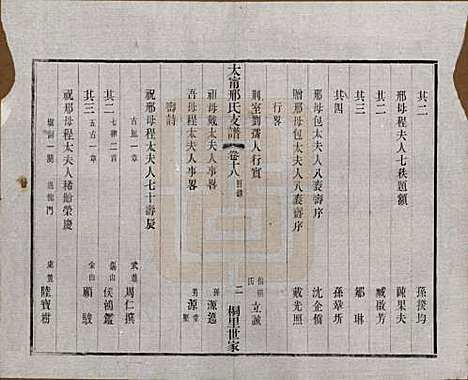 其二 孫揆均
邢母程太夫人七秩題額 陳果夫
其二 臧啟芳
其三 鄒琳
其四 孫肇圻
邢母包太夫人八袠壽序 沈企僑
贈邢母包太夫人八袠壽序 戴光照
行畧
荆室劉孺人行實 立誠
太甯邢氏支譜 卷十八 目錄 二 桐里世家
祖母戴太夫人事畧 孫源逵
吾母程太夫人事畧 男源堂
壽詩
祝邢母程太夫人七十壽辰 古風一章 武進 周仁撰
其二 七律二首 錫山 侯鴻鑑
其三 五古一章 金山 顧駿
祝邢母程太夫人稀齡榮慶 龍門 東臺 陸寶樹